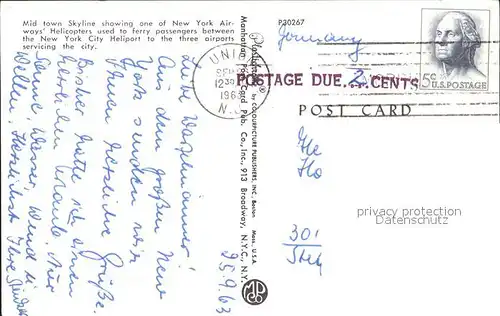 Mid town Skyline showing one of New York Air-
ways' Helicopters used to ferry passengers between
the New York City Heliport to the three airports
servicing the city.
P30267
Germany
UNION
SEP
12
196
N.J.
POSTAGE DUE 2 CENTS
5¢ U.S. POSTAGE
POST CARD
Plastichrome ® by COLOURPICTURE PUBLISHERS, INC. Boston Mass. U.S.A.
Manhattan Post Card Pub. Co., Inc., 913 Broadway, N.Y.C., N.Y.
25.9.63
Aus dem großen New
York senden wir
Ihnen herzliche Grüße.
hatte ich einen
herrlichen Urlaub. Nur
Sonne, Wasser, Wind u.
Wellen. Herzlichst Ihre
He
Ho
301
privacy protection
Datenschutz